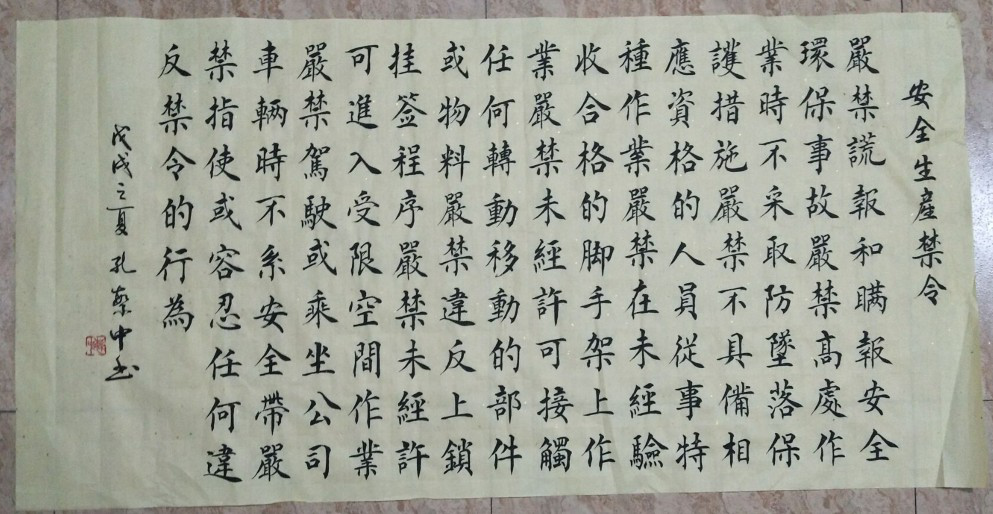 安全生産禁令
嚴禁謊報和瞞報安全
環保事故嚴禁高處作
業時不采取防墜落保
護措施嚴禁不具備相
應資格的人員從事特
種作業嚴禁在未經驗
收合格的脚手架上作
業嚴禁未經許可接觸
任何轉動移動的部件
或物料嚴禁違反上鎖
挂签程序嚴禁未經許
可進入受限空間作業
嚴禁駕駛或乘坐公司
車輛時不系安全帶嚴
禁指使或容忍任何違
反禁令的行為
戊戌之夏孔繁中書